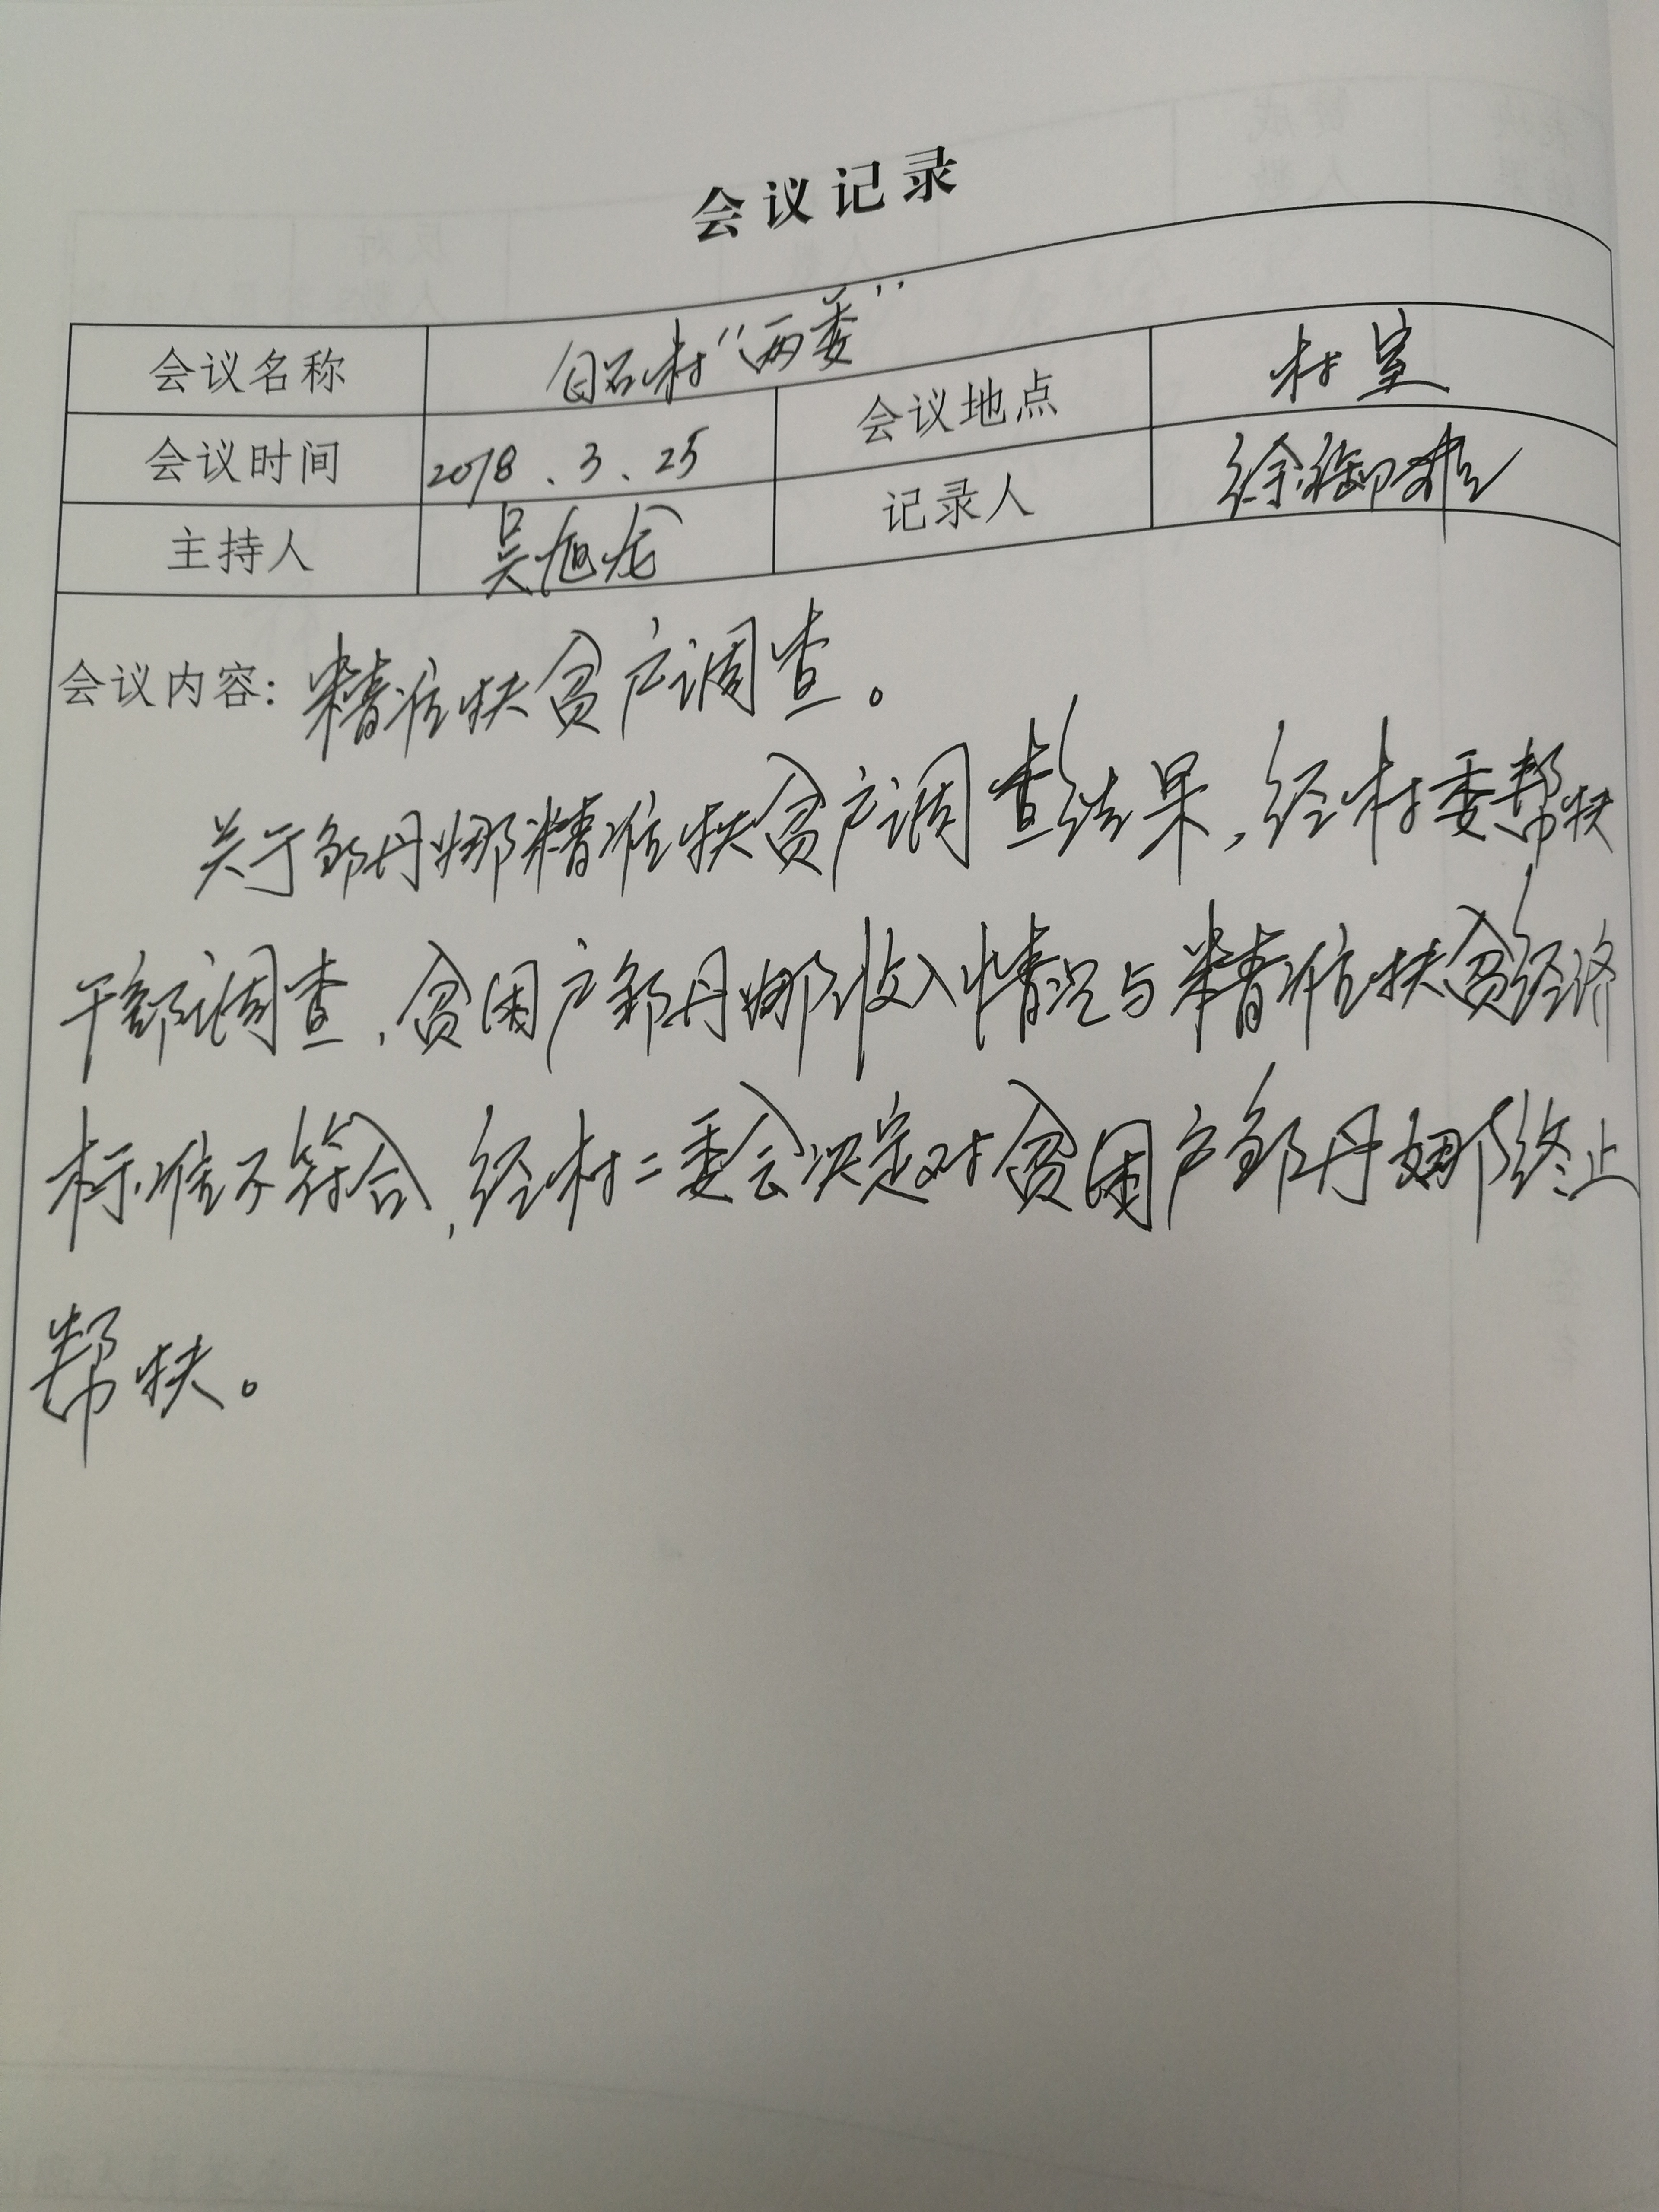 会议记录
会议名称 白石村“两委”
会议时间 2018.3.25 会议地点 村室
主持人 吴旭龙 记录人 徐御雄
会议内容：精准扶贫户调查。
关于邹丹娜精准扶贫户调查结果，经村委帮扶
干部调查，贫困户邹丹娜收入情况与精准扶贫经济
标准不符合，经村二委会决定对贫困户邹丹娜终止
帮扶。